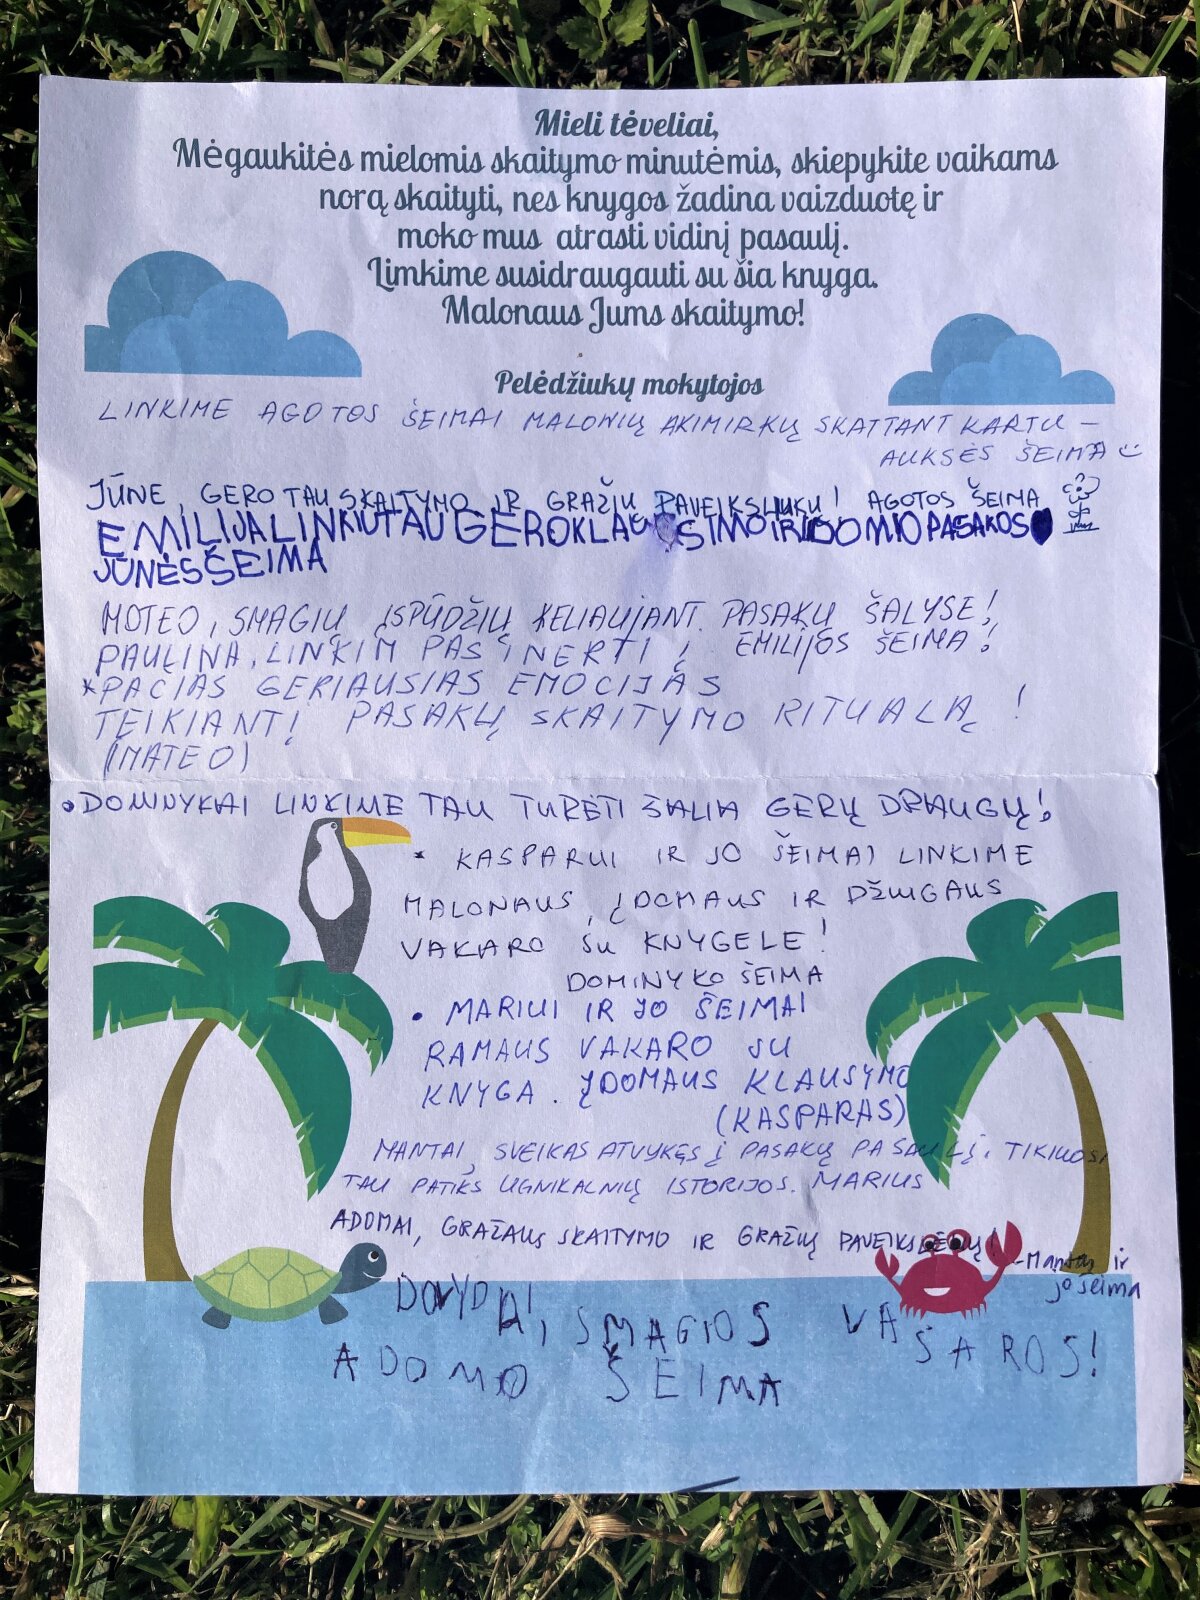 Mieli tėveliai,
Mėgaukitės mielomis skaitymo minutėmis, skiepykite vaikams
norą skaityti, nes knygos žadina vaizduotę ir
moko mus atrasti vidinį pasaulį.
Limkime susidraugauti su šia knyga.
Malonaus Jums skaitymo!
Pelėdžiukų mokytojos
LINKIME AGOTOS ŠEIMAI MALONIŲ AKIMIRKŲ SKAITANT KARTU –
AUKSĖS ŠEIMA
JŪNE, GERO TAU SKAITYMO IR GRAŽIŲ PAVEIKSLIUKŲ! AGOTOS ŠEIMA
EMILIJA LINKIU TAU GERO KLAUSIMO IR IDOMIO PASAKOS
JŪNĖS ŠEIMA
MOTEO, SMAGIŲ ĮSPŪDŽIŲ KELIAUJANT PASAKŲ ŠALYSE!
EMILIJOS ŠEIMA!
PAULINA, LINKIM PASINERTI Į
*PAČIAS GERIAUSIAS EMOCIJAS
TEIKIANTĮ PASAKŲ SKAITYMO RITUALĄ!
(MATEO)
• DOMINYKAI LINKIME TAU TURĖTI ŠALIA GERŲ DRAUGŲ!
* KASPARUI IR JO ŠEIMAI LINKIME
MALONAUS, ĮDOMAUS IR DŽIUGAUS
VAKARO SU KNYGELE!
DOMINYKO ŠEIMA
• MARIUI IR JO ŠEIMAI
RAMAUS VAKARO SU
KNYGA. ĮDOMAUS KLAUSYMO
(KASPARAS)
MANTAI, SVEIKAS ATVYKĘS Į PASAKŲ PASAULĮ. TIKIUOSI
TAU PATIKS UGNIKALNIŲ ISTORIJOS. MARIUS
ADOMAI, GRAŽAUS SKAITYMO IR GRAŽIŲ PAVEIKSLĖLIŲ!
-Mantas ir
jo šeima
DOVYDAI, SMAGIOS VASAROS!
ADOMO ŠEIMA